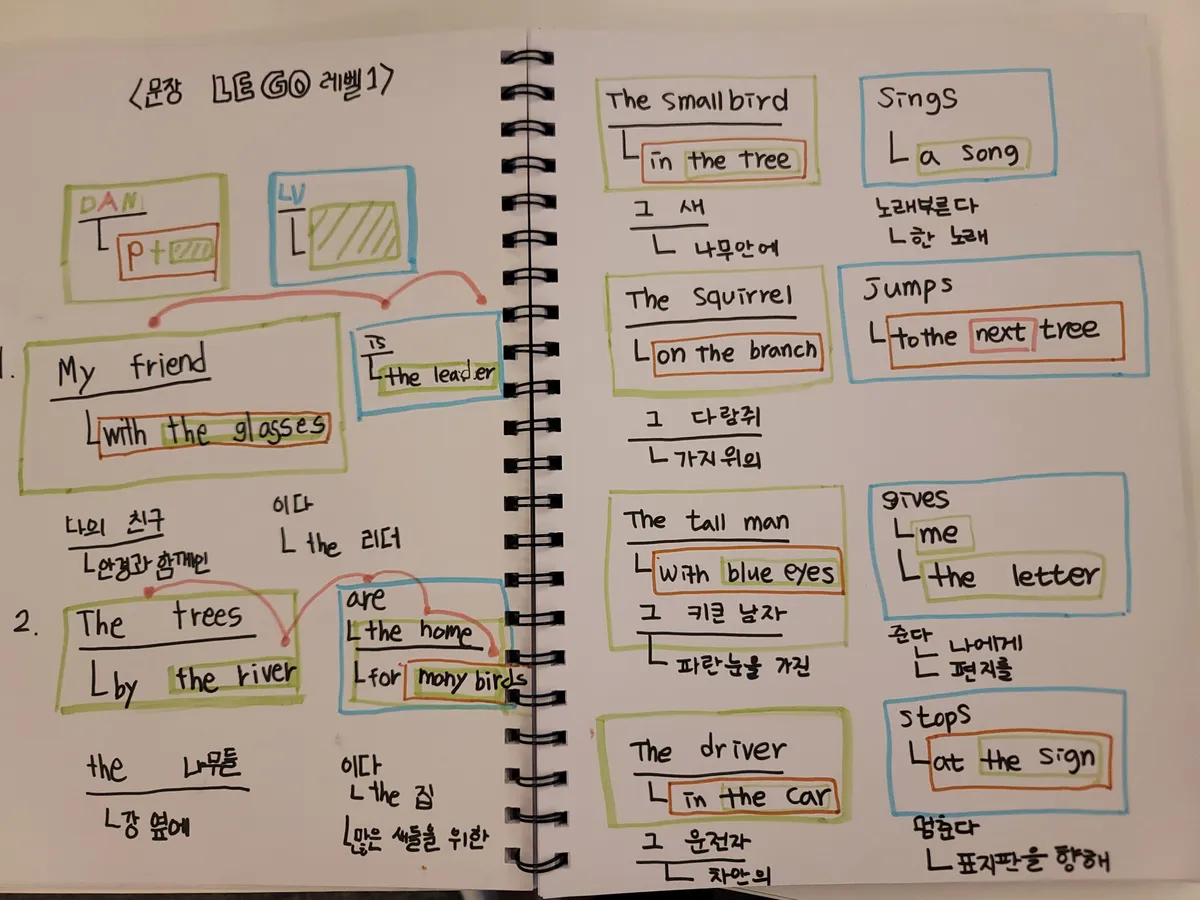 <문장 LEGO 레벨1>
DAN
p +
LV
1.
My friend
with the glasses
is
the leader
나의 친구
안경과 함께인
이다
the 리더
2.
The trees
by the river
are
the home
for many birds
the 나무들
강 옆에
이다
the 집
많은 새들을 위한
The small bird
in the tree
sings
a song
그 새
나무안에
노래부른다
한 노래
The squirrel
on the branch
Jumps
to the next tree
그 다람쥐
가지위의
The tall man
with blue eyes
gives
me
the letter
그 키큰 남자
파란눈을 가진
준다
나에게
편지를
The driver
in the car
stops
at the sign
그 운전자
차안의
멈춘다
표지판을 향해